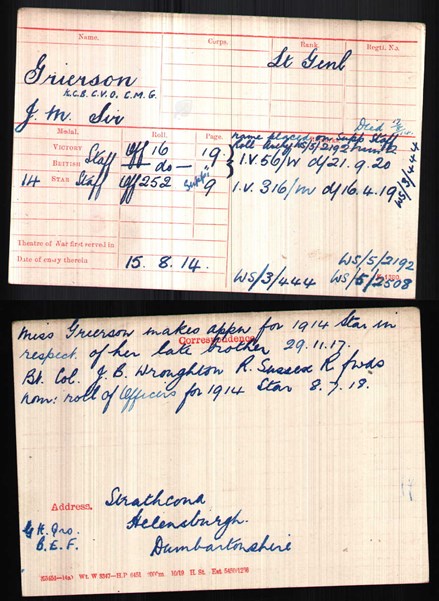 Name. Corps. Rank. Regtl. No.
Lt Genl
Grierson
K.C.B. C.V.O. C.M.G.
J. M. Sir
Died
Medal. Roll. Page.
name placed on Supp Staff
roll WS/5/2192
Victory Staff Off 16 19
British — do —
I.V. 56/W d/ 21.9.20
14 Star Staff Off 252 9
I.V. 316/W d/ 16.4.19
WS/3/444
Theatre of War first served in
Date of entry therein 15. 8. 14.
WS/5/2192
WS/3/444 WS/5/2508
Miss Grierson makes appn for 1914 Star in
Correspondence.
respect of her late brother 29.11.17.
Bt. Col. J. B. Wroughton R. Sussex R fwds
nom: roll of Officers for 1914 Star 8.7.18.
Address. Strathcona
Helensburgh.
Dumbartonshire
B.E.F.